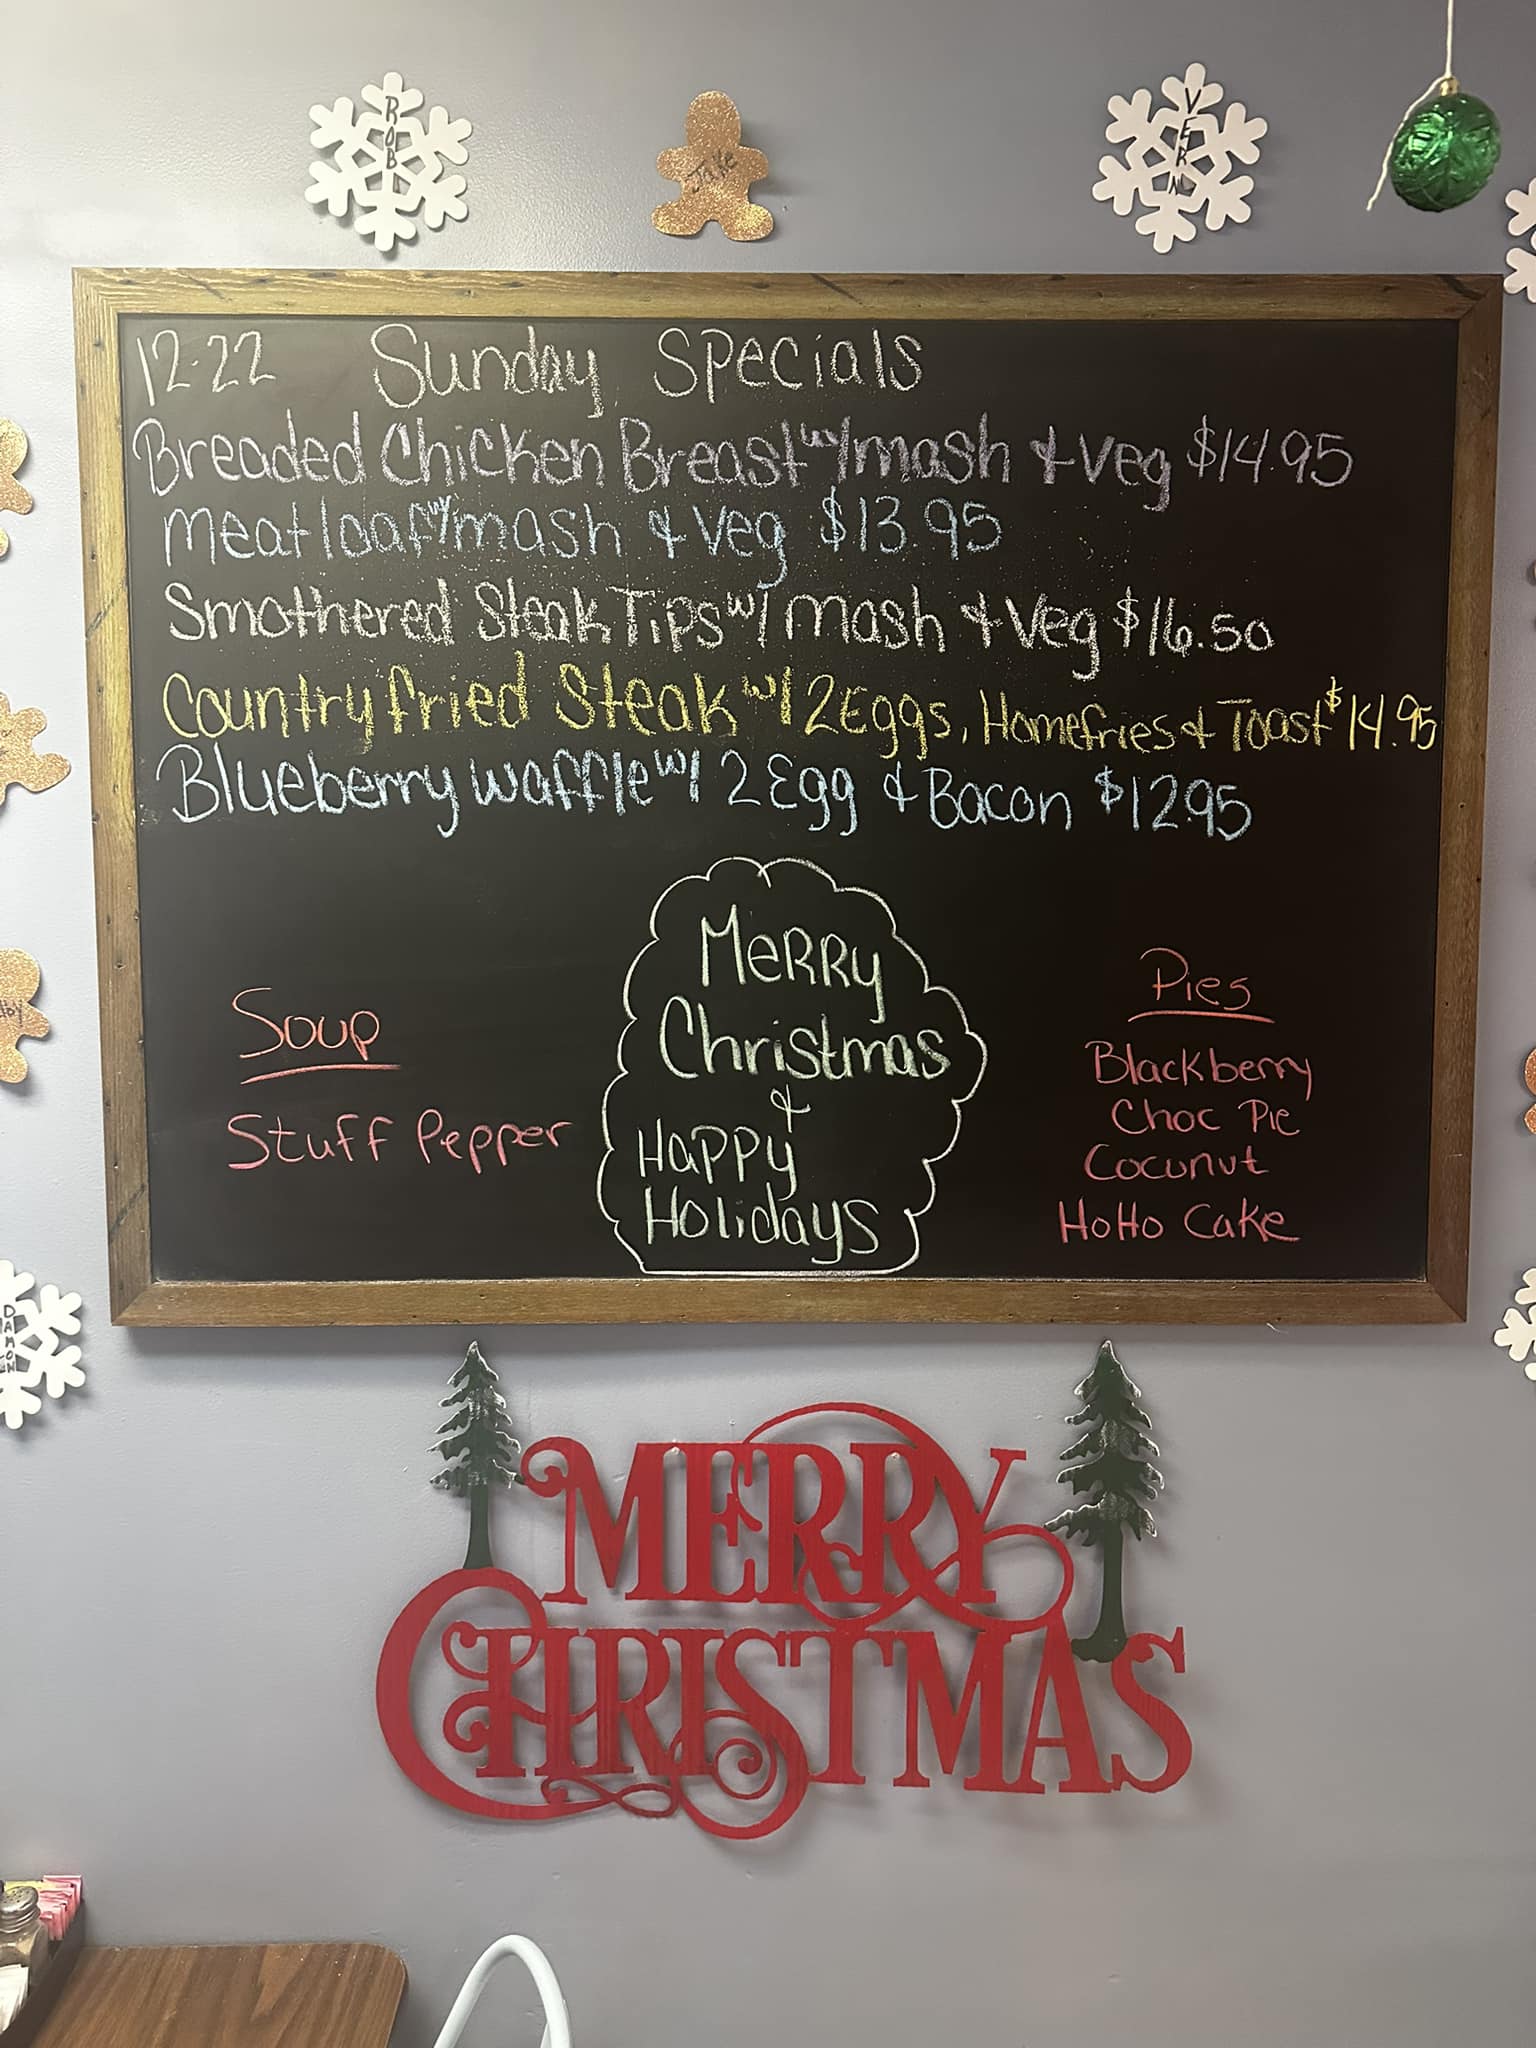 ROBI
Jake
VERN
12-22 Sunday Specials
Breaded Chicken Breast w/ mash & Veg $14.95
meatloaf w/ mash & Veg $13.95
Smothered Steak Tips w/ mash & Veg $16.50
Country fried Steak w/ 2 Eggs, Homefries & Toast $14.95
Blueberry waffle w/ 2 Egg & Bacon $12.95
Merry
Christmas
&
Happy
Holidays
Soup
Stuff Pepper
Pies
Blackberry
Choc Pie
Coconut
HoHo Cake
DAMON
MERRY
CHRISTMAS